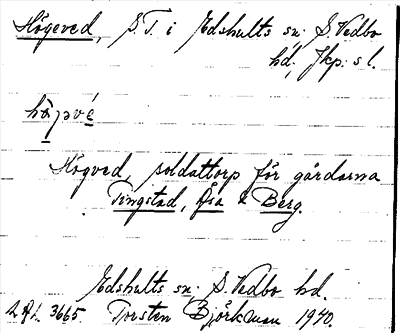 Högeved, S.T. i Edshults sn. S. Vedbo
hd, Jkp. sl.
Högved, soldattorp för gårdarna
Tingstad, Åsa & Berg.
Edshults sn. S. Vedbo hd.
3665. Torsten Björkman 1940.